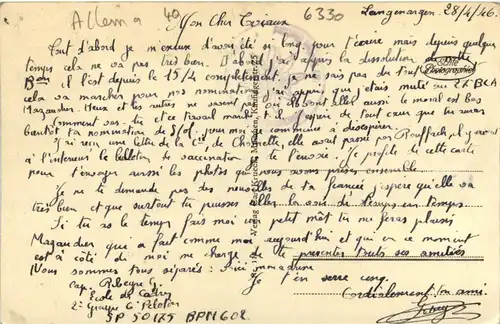 Allema 49
6330
Langenargen 28/4/46.
Mon Cher
Tout d'abord je m'excuse d'avoir été si long pour t'écrire mais depuis quelque
temps cela ne va pas très bien. D'abord j'ai appris la dissolution
Bon il l'est depuis le 15/4 complètement, je ne sais pas du tout
cela va marcher pour nos nominations j'ai appris que j'étais muté au BCA
Mazaudier et les autres ne savent pas où ils vont aller aussi le moral est bas
Comment vas-tu et ce travail marche t'il j'espère de tout cœur que tu auras
bientôt ta nomination de S/Lt, pour moi je commence à désespérer
J'ai reçu une lettre de la Cie de elle avait passé par Rouffach, il y avait
à l'intérieur le bulletin de vaccination je te l'envoie. Je profite de cette carte
pour t'envoyer aussi les photos que nous avons prises ensemble
Je ne te demande pas des nouvelles de ta fiancée j'espère qu'elle va
très bien et que surtout tu puisses aller la voir de temps en temps.
Si tu as le temps fais moi un petit mot tu me feras plaisir
Mazaudier qui a fait comme moi aujourd'hui et qui en ce moment
est à côté de moi me charge de te présenter toutes ses amitiés
Nous sommes tous séparés
Je t'en serre cinq
Cap. Ribeyre G.
Cordialement ton ami
Ecole de Cadres
2e Groupe 6e Peloton
SP 50175 BPM 602